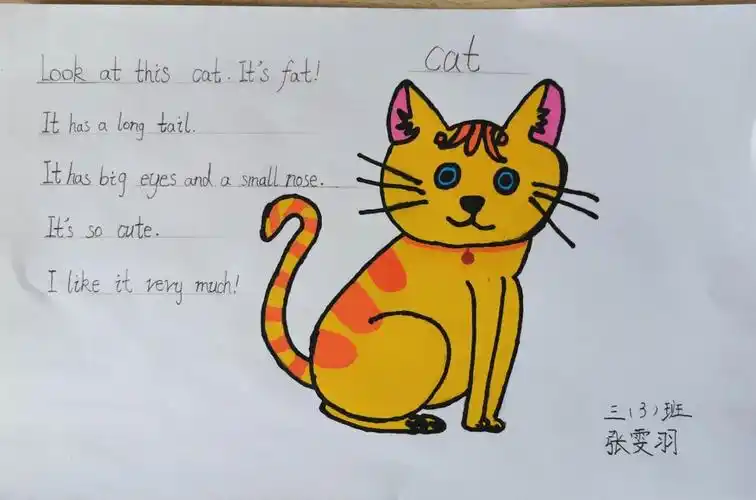 cat
Look at this cat. It's fat!
It has a long tail.
It has big eyes and a small nose.
It's so cute.
I like it very much!
三(3)班
张雯羽